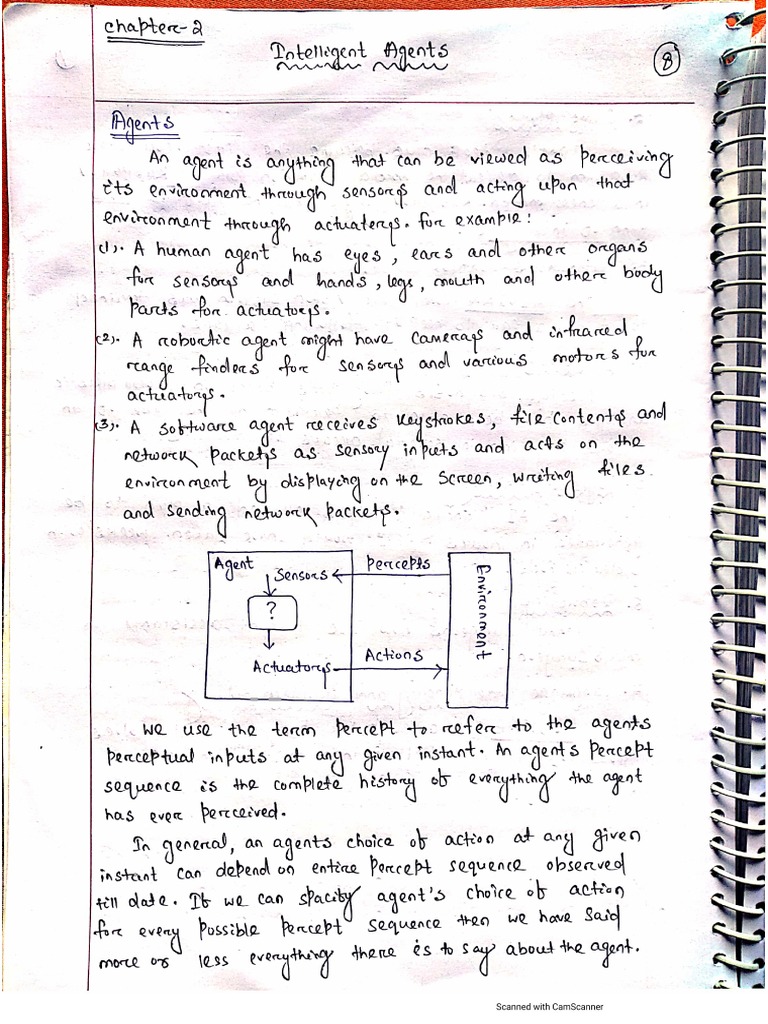 Chapter-2
Intelligent Agents
8
Agents
An agent is anything that can be viewed as perceiving
its environment through sensors and acting upon that
environment through actuaters. for example:
(1). A human agent has eyes, ears and other organs
for sensors and hands, legs, mouth and other body
parts for actuators.
(2). A robotic agent might have cameras and infrared
range finders for sensors and various motors for
actuators.
(3). A software agent receives keystrokes, file contents and
network packets as sensory inputs and acts on the
environment by displaying on the screen, writing files
and sending network packets.
Agent
Sensors
Percepts
Environment
?
Actuators
Actions
We use the term percept to refer to the agents
perceptual inputs at any given instant. An agents percept
sequence is the complete history of everything the agent
has ever perceived.
In general, an agents choice of action at any given
instant can depend on entire percept sequence observed
till date. If we can spacify agent's choice of action
for every possible percept sequence then we have said
more or less everything there is to say about the agent.
Scanned with CamScanner